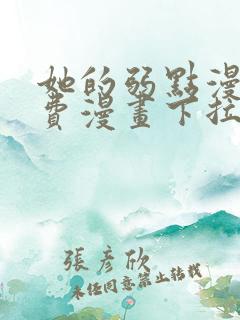 她的弱點漫
費漫畫下拉
張彥欣
未经同意禁止转载